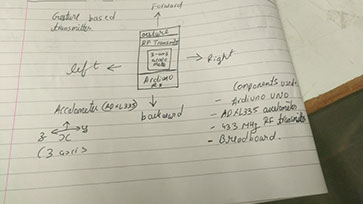 Gesture based
transmitter
Forward
RF Transmitt
3-axis
left
Right
Arduino
backward
Accelerometer (ADXL335)
3-
x
y
(3 axis
Components used:
- Arduino UNO
- ADXL335 accelerometer
- 433 MHz RF transmitter
- Breadboard.